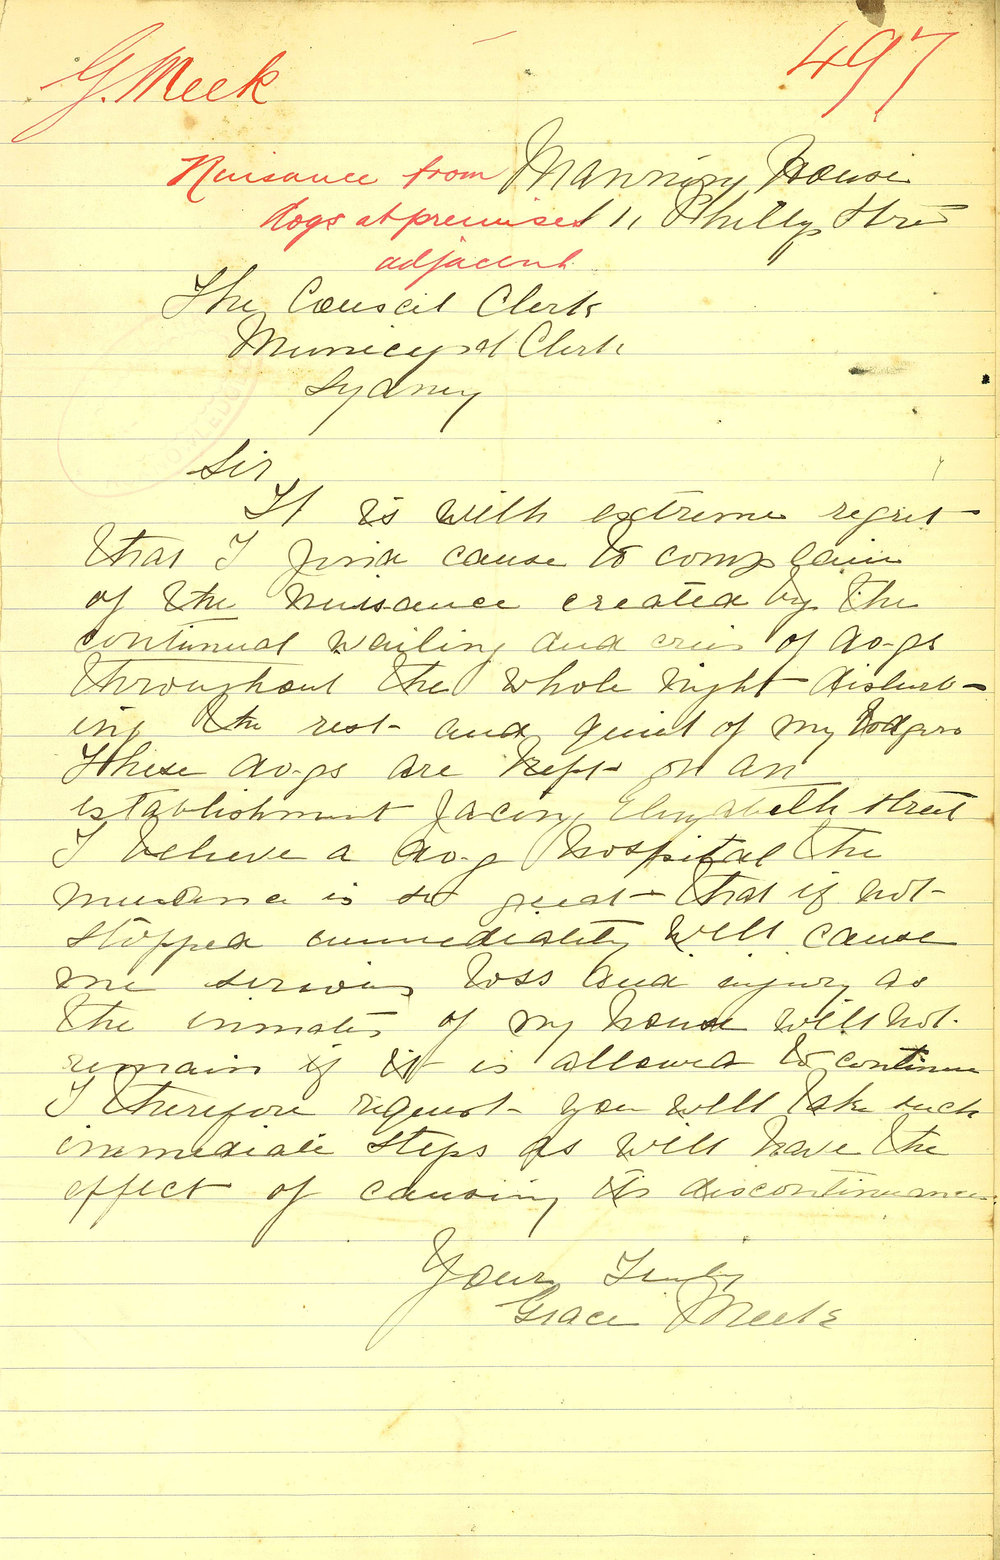 G. Meek
497
Nuisance from
dogs at premises
adjacent
Manning House
11 Phillip Street
The Council Clerk
Municipal Clerk
Sydney
Sir
It is with extreme regret
that I find cause to complain
of the nuisance created by the
continual wailing and cries of dogs
throughout the whole night disturb-
ing the rest and quiet of my lodgers
These dogs are kept on an
establishment facing Elizabeth Street
I believe a dog hospital the
nuisance is so great that if not
stopped immediately will cause
me serious loss and injury as
the inmates of my house will not
remain if it is allowed to continue
I therefore request you will take such
immediate steps as will have the
effect of causing its discontinuance
Yours Truly
Grace Meek